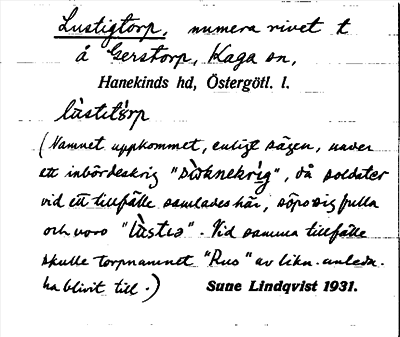 Lustigtorp, numera rivet t
å Gerstorp, Kaga sn,
Hanekinds hd, Östergötl. l.
lùstitårp
(Namnet uppkommet, enligt sägen, under
ett inbördeskrig "", då soldater
vid ett tillfälle samlades här, söpo sig fulla
och voro "". Vid samma tillfälle
skulle torpnamnet "Rus" av likn. anledn.
ha blivit till.) Sune Lindqvist 1931.